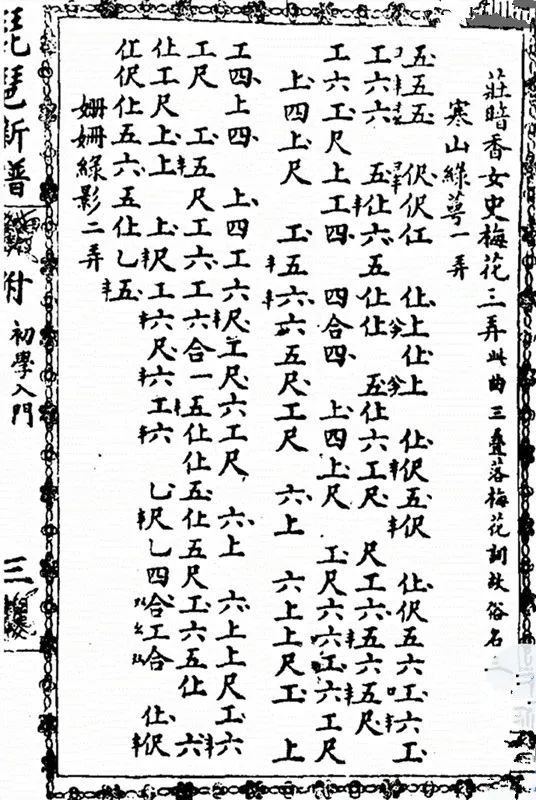 莊暗香女史梅花三弄此曲三疊落梅花訓故俗名三
寒山綠萼一弄
五五五 伬伬仜 仩上仩上 仩伬五伬 仩伬五六工六工
工六六 五仩六五 仩仩 五仩六工尺 尺工六五六五尺
工六工尺上工四 四合四 上四上尺 工尺六六工六工尺
上四上尺 工五六六五尺工尺 六上 六上上尺工 上
工四上四 上四工六尺工尺六工尺 六上 六上上尺工六
工尺 工五尺工六工六合一五仩仩五仩五尺工六五仩 六
仩工尺上上 上尺工六尺六工六 乚尺乚四合工合 仩伬
仜伬仩五六五仩乚五
姍姍綠影二弄
琵琶新譜
附
初學入門
三